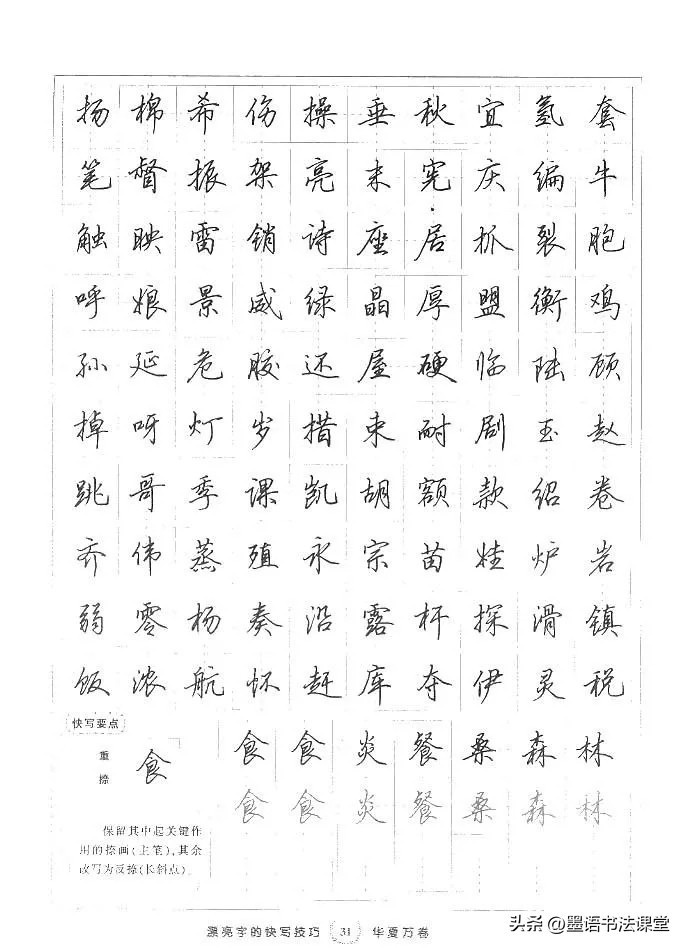 扬棉希伤操垂秋宜氢套
笔督振架亮末宪庆编牛
触映雷销诗座居抓裂胞
呼娘景威绿晶厚盟衡鸡
孙延危胶还屋硬临陆顾
掉呀灯岁措束耐剧玉赵
跳哥季课凯胡额款绍卷
齐伟蒸殖永宗苗娃炉岩
弱零杨奏沿露杆探滑镇
饭浓航怀赶库夺伊灵税
快写要点
重捺
食
食食炎餐桑森林
食食炎餐桑森林
保留其中起关键作
用的捺画(主笔),其余
改写为反捺(长斜点)。
漂亮字的快写技巧 31 华夏万卷
头条@墨语书法课堂